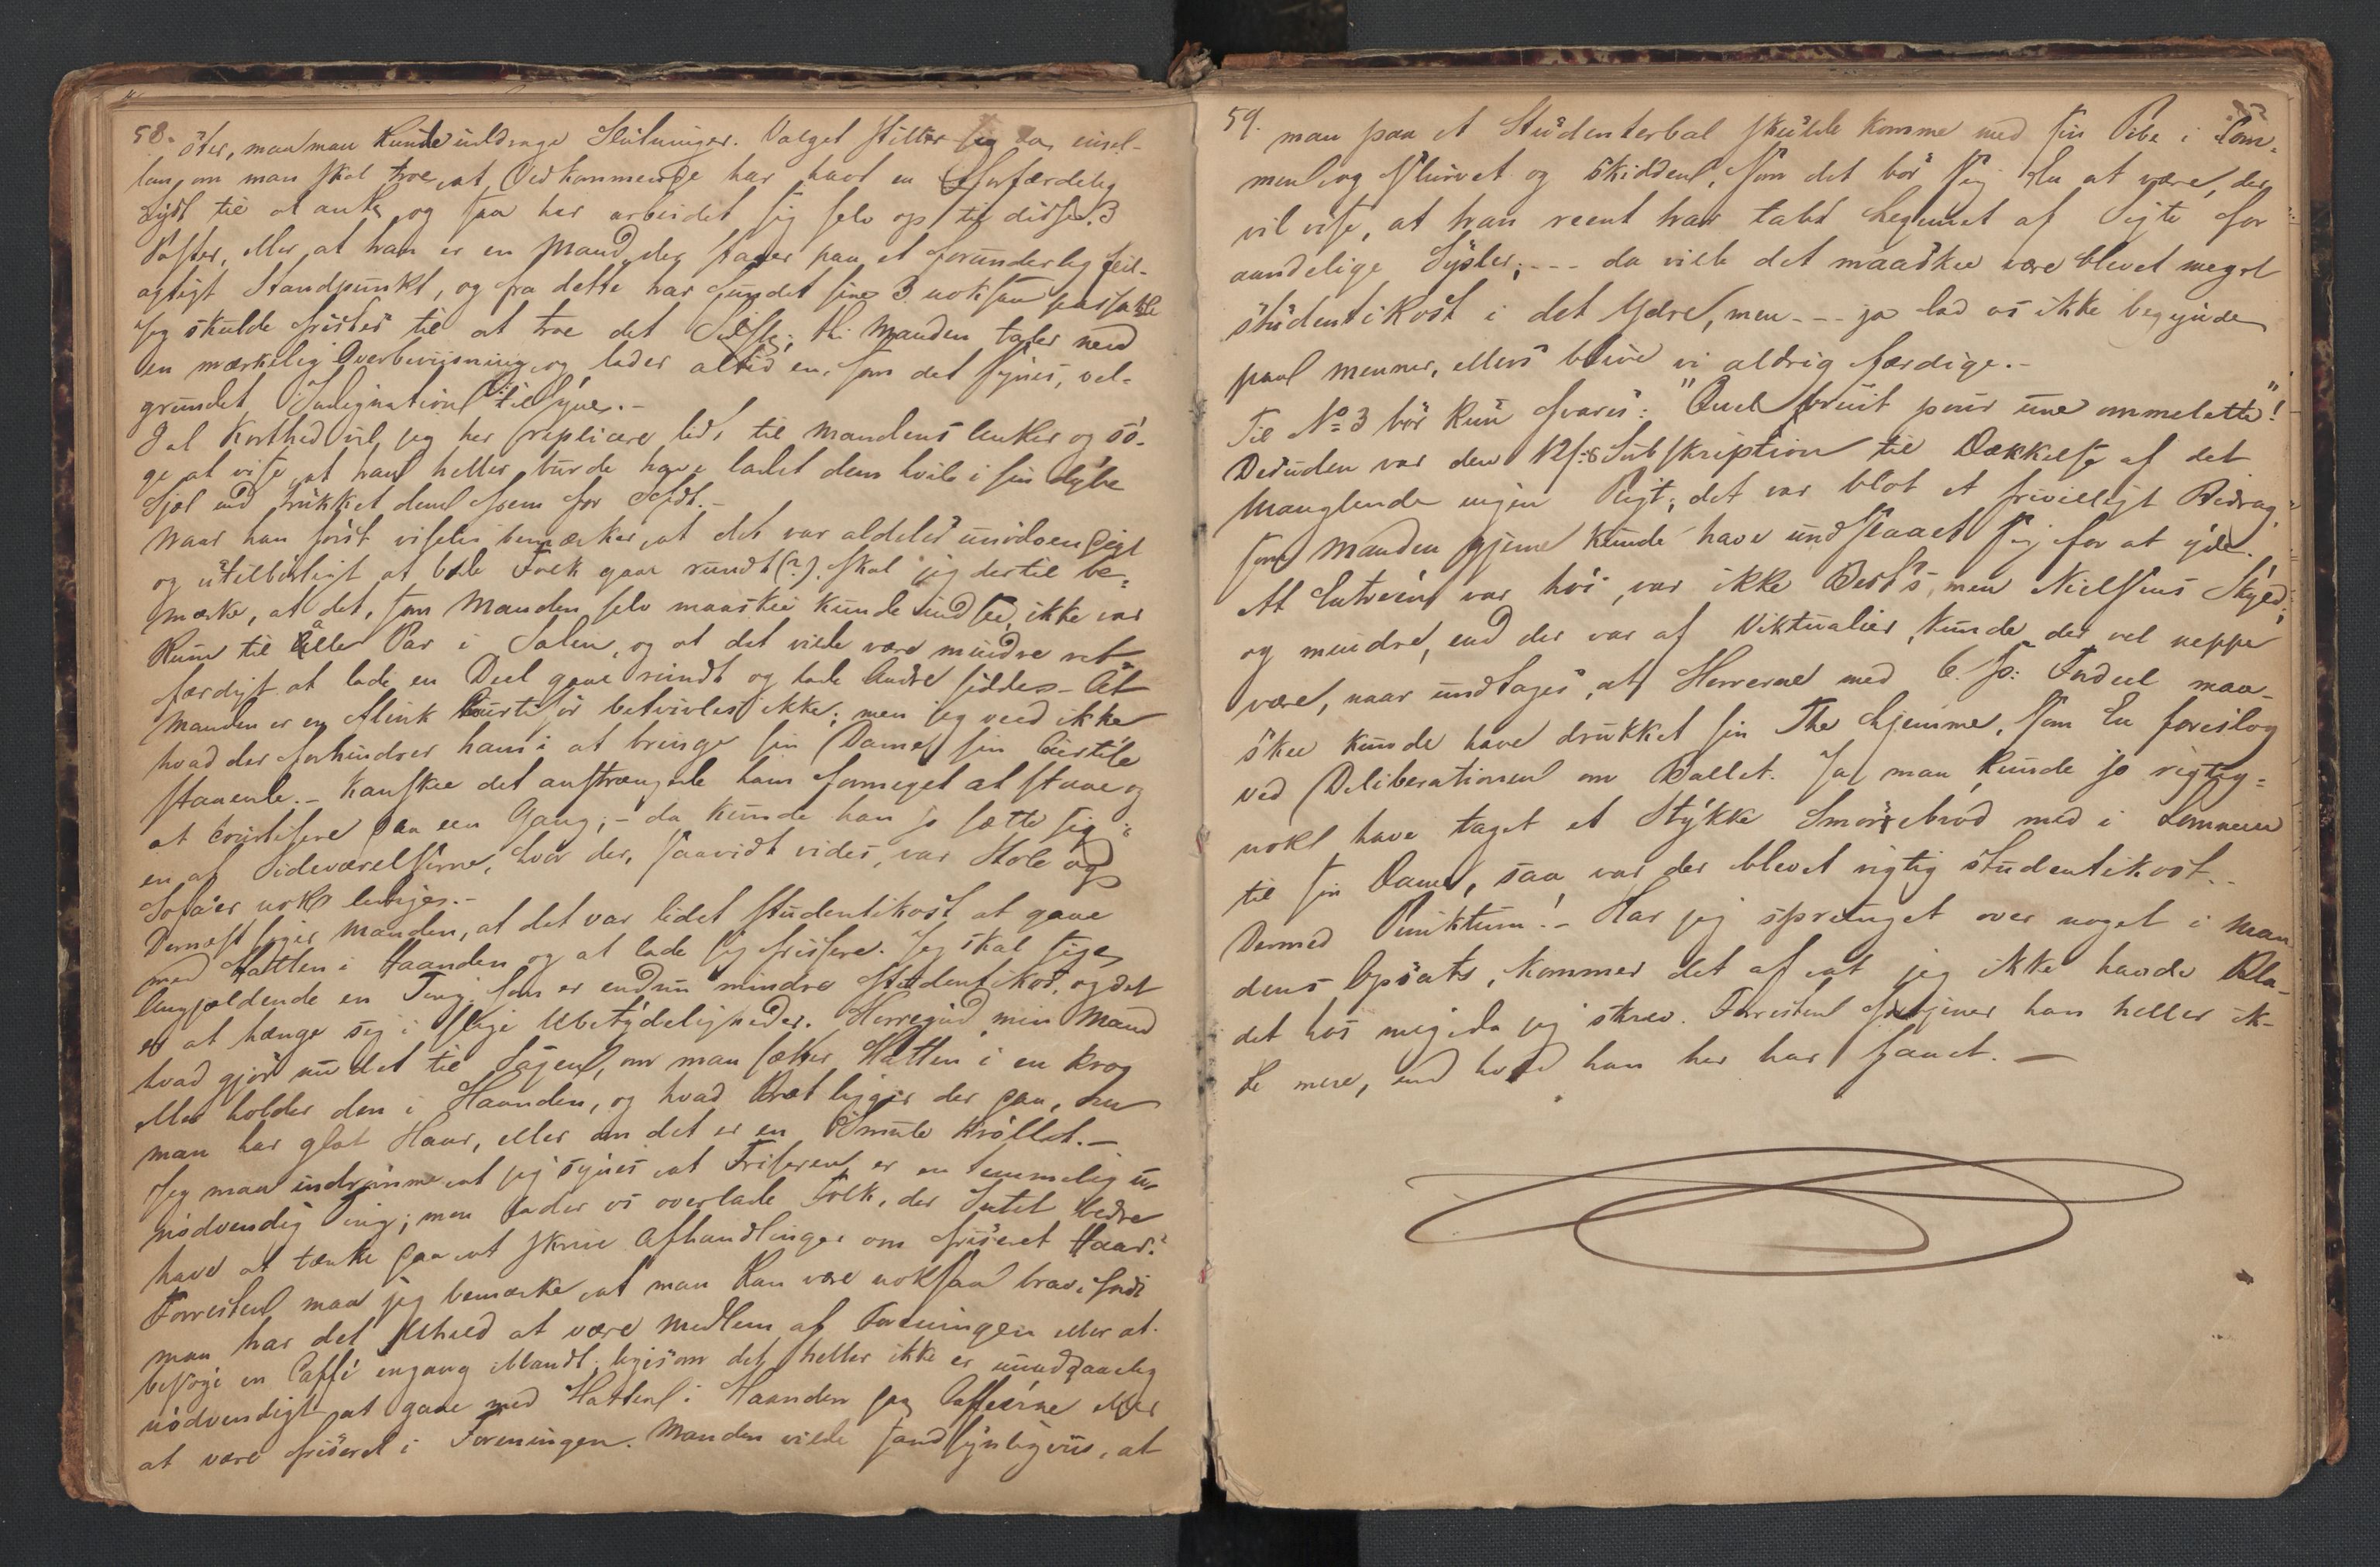 58.
öster, maa man kunde uddrage Slutninger. Valget stiller sig da, imel-
lem, om man skal troe, at Vedkommende har havt en forfærdelig
Lyst til at anke og saa har arbeidet sig selv op til disse 3
Poster, eller at han er en Mand, der staaer paa et forunderlig feil-
agtigt Standpunkt, og fra dette har fundet sine 3 noksaa passable
Jeg skulde fristes til at troe det Sidste; thi Manden taler med
en mærkelig Overbeviisning og lader altid en, som det synes, vel-
grundet Indignation tilsyne. -
I al Korthed vil jeg her replicere lidt til Mandens Anker og sö-
ge at vise, at han heller burde have ladet dem hvile i sin dybe
Sjæl end trukket dem frem for Lyset. -
Naar han först viseligen bemærker, at det var aldeles unödvendigt
og utilbörligt at lade Folk gaae rundt (?), skal jeg dertil be-
mærke, at det, som Manden selv maaskee kunde indsee, ikke var
Rum til alle Par i Salen, og at det vilde være mindre ret-
færdigt at lade en Deel gaae rundt og lade Andre sidde. - At
Manden er en flink Courtisör betvivles ikke; men jeg veed ikke
hvad der forhindrer ham i at bringe sin Dame sin Courtisie
staaende. - Kanskee det anstrængede ham formeget at staae og
at courtisere paa een Gang; - da kunde han jo sætte sig i
en af Sideværelserne, hvor der, saavidt vides, var Stole og
Sofaer nok ledige. -
Dernæst siger Manden, at det var lidet studentikost at gaae
med Hatten i Haanden og at lade sig frisere. Jeg skal sige
Angjældende en Ting, som er endnu mindre studentikos, og det
er at hænge sig i slige Ubetydeligheder. Herregud, min Mand
hvad gjör nu det til Sagen, om man sætter Hatten i en Krog
eller holder den i Haanden, og hvad Vægt ligger der paa, om
man har glat Haar, eller om det er en Smule kröllet. -
Jeg maa indrömme, at jeg synes, at Friseren er en temmelig u-
nödvendig Ting; men lader os overlade Folk, der Intet bedre
have at tænke paa, at skrive Afhandlinger om friseret Haar.
Forresten maa jeg bemærke, at man kan være noksaa brav, fordi
man har det Uheld at være Medlem af Foreningen eller at
besöge en Caffé engang iblandt, ligesom det heller ikke er uundgaaelig
nödvendigt at gaae med Hatten i Haanden paa Caffeerne eller
at være friseret i Foreningen. Manden vilde sandsynligviis, at
59.
man paa et Studenterbal skulde komme med sin Pibe i Lom-
men og slurvet og skidden, som det bör sig En at være, der
vil vise, at han reent har tabt Legemet af Sigte for
aandelige Sysler; --- da vilde det maaskee være blevet meget
studentikost i det Ydre, men --- ja lad os ikke begynde
paa menner, ellers blive vi aldrig færdige. -
Til No 3 bör kun svares: "Quel bruit pour une ommelette"!
Desuden var den 12 s: Subskription til Dækkelse af det
Manglende ingen Pligt; det var blot et frivilligt Bidrag,
som Manden gjerne kunde have undslaaet sig for at yde.
At Entreen var höi, var ikke Bests, men Nielsens Skyld;
og mindre, end der var af Viktualier, kunde der vel neppe
være, naar undtages, at Herrerne med C. P: Indeel maa-
skee kunde have drukket sin The hjemme, som En foreslog
ved Deliberationen om Ballet. Ja man kunde jo rigtig-
nok have taget et Stykke Smörrebröd med i Lommen
til sin Dame, saa var der blevet rigtig studentikost. -
Dermed Punktum! - Har jeg sprunget over noget i Man-
dens Opsats, kommer det af, at jeg ikke havde Bla-
det hos mig, da jeg skrev. Forresten fortjener han heller ik-
ke mere, end hvad han her har faaet. -